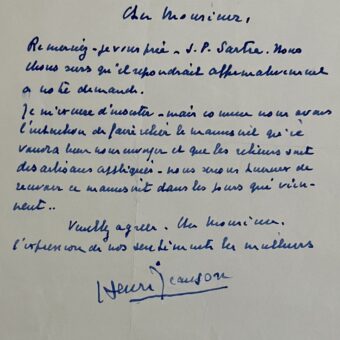 Cher Monsieur,
Remerciez - je vous prie - J. P. Sartre. Nous
étions sûrs qu'il répondrait affirmativement
à notre demande.
Je m'excuse d'insister - mais comme nous avons
l'intention de faire relier le manuscrit qu'il
voudra bien nous envoyer et que les relieurs sont
des artisans appliqués - nous serions heureux de
recevoir ce manuscrit dans les jours qui vien-
nent..
Veuillez agréer, Cher Monsieur,
l'expression de nos sentiments les meilleurs
Henri Jeanson